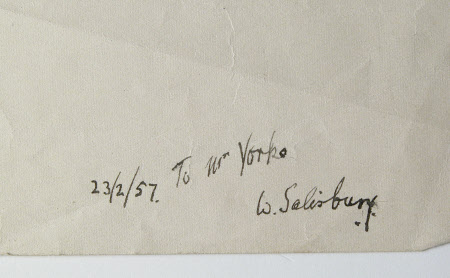 23/2/57. To Mr Yorke
W. Salisbury.